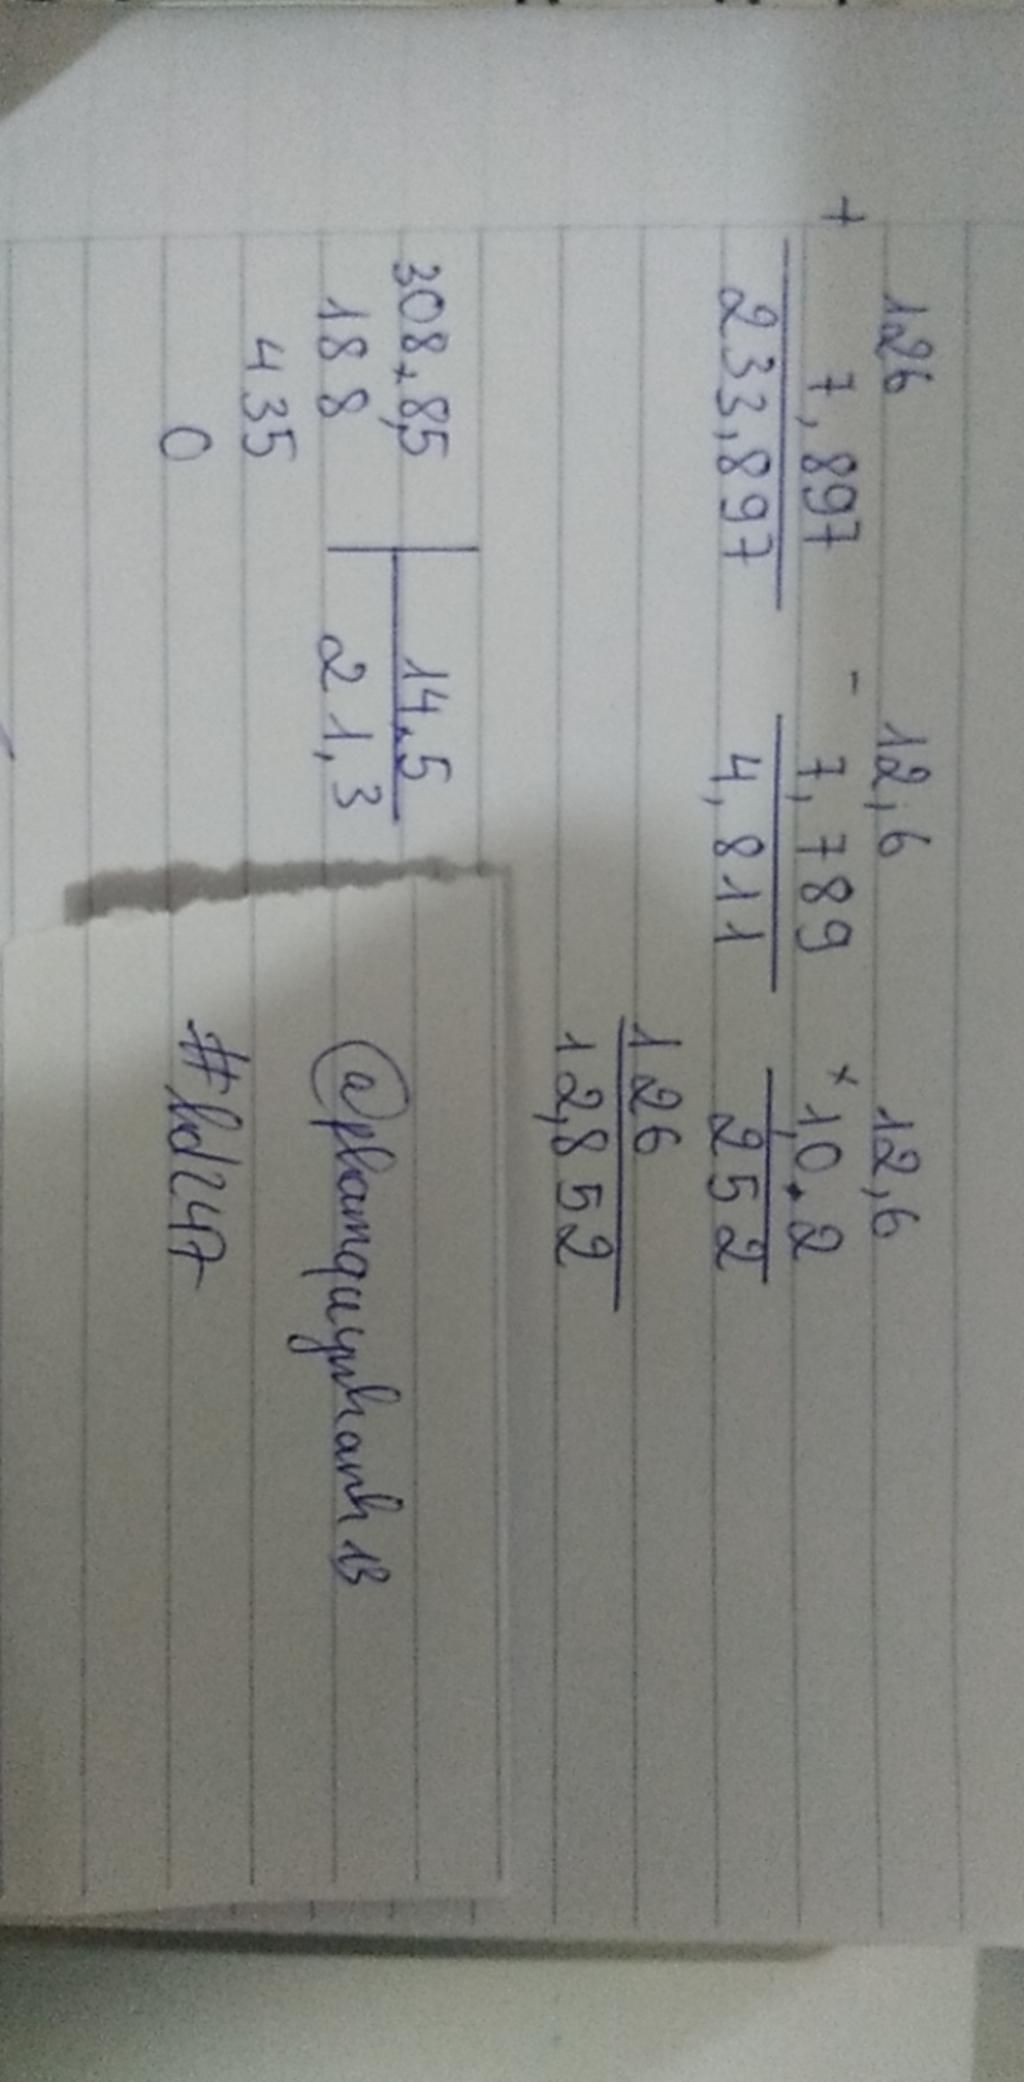 126
+ 7,897
233,897
12,6
- 7,789
4,811
12,6
× 10.2
252
126
12,852
308,8,5 14,5
188 21,3
435
0
@phamquynhanh13
#hd247